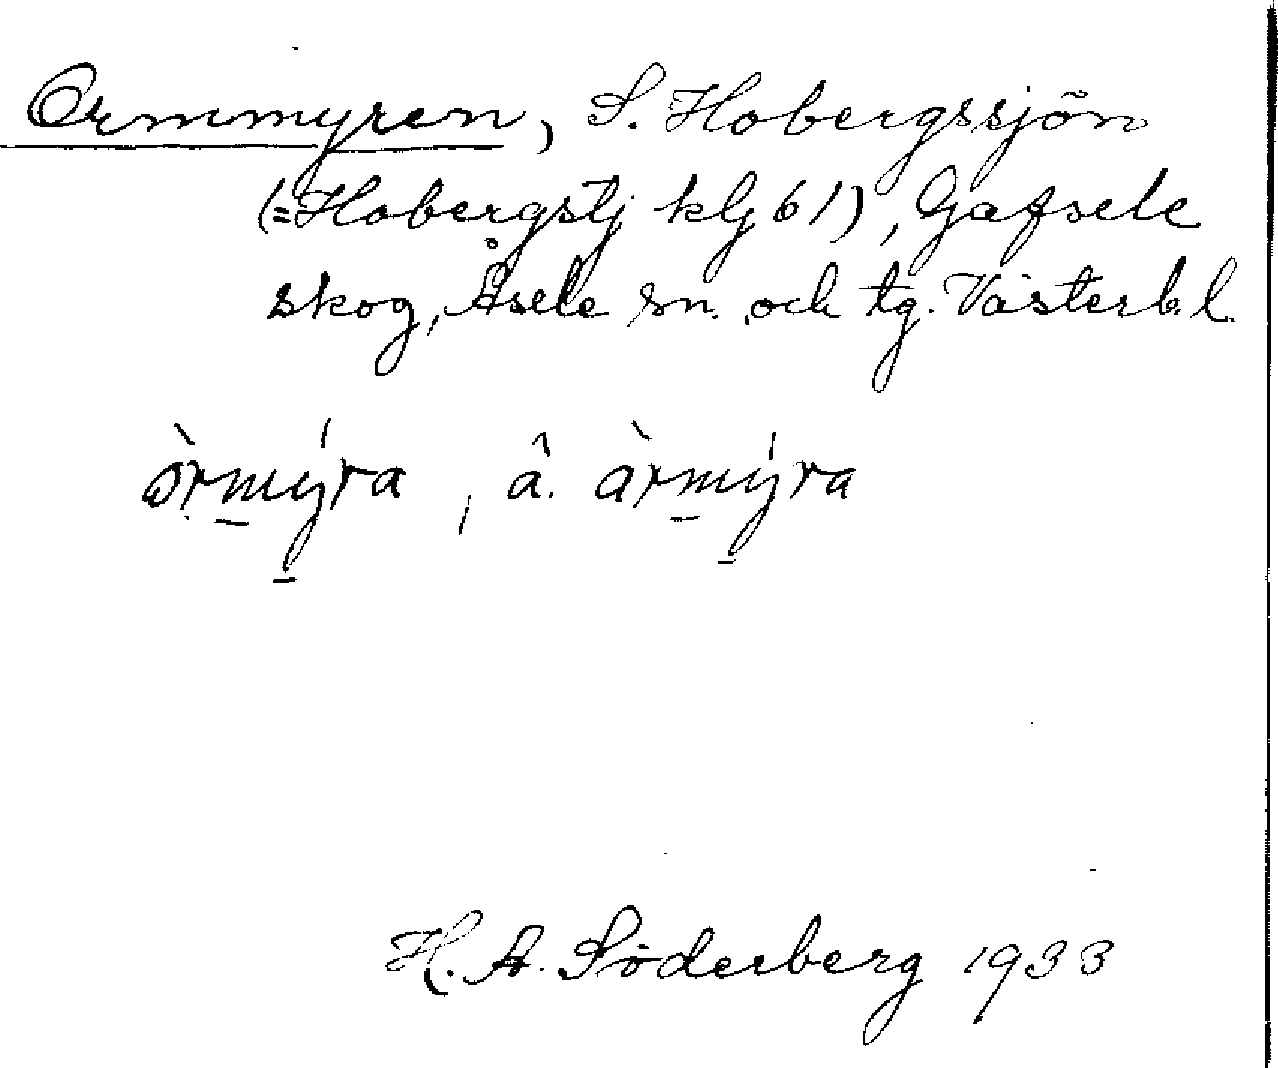 Ormmyren, S. Hobergssjön
(=Hobergstj klj 61), Gafsele
skog, Åsele sn. och tg. Västerb. l.
òrm̱ý̱ra, â. àrm̱ý̱ra
H. A. Söderberg 1933